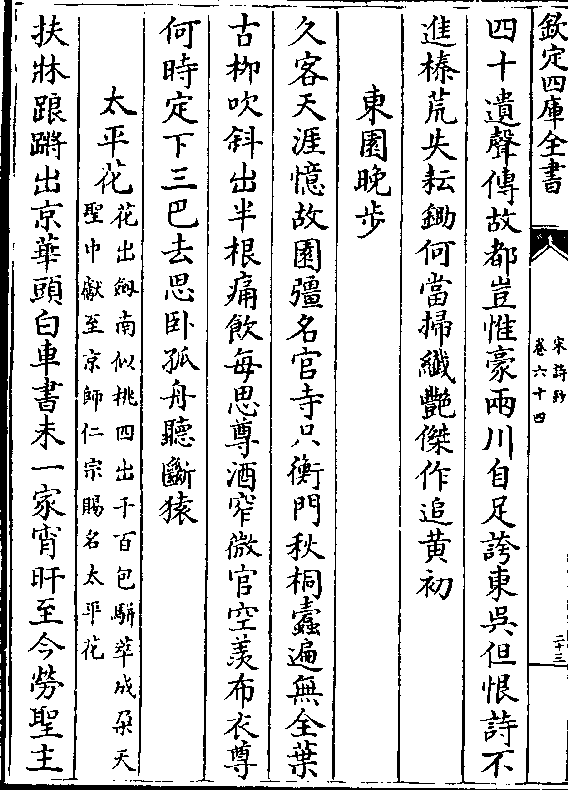 欽定四庫全書
宋詩鈔
卷六十四
二十三
四十遺聲傳故都豈惟豪兩川自足誇東吳但恨詩不
進榛荒失耘鋤何當掃纖艷傑作追黄初
東園晚歩
久客天涯憶故園彊名官寺只衡門秋桐蠧遍無全葉
古栁吹斜出半根痛飲每思尊酒窄微官空羨布衣尊
何時定下三巴去思卧孤舟聽斷猿
太平花
花出劔南似桃四出千百包駢萃成朶天
聖中獻至京師仁宗賜名太平花
扶牀踉蹡出京華頭白車書未一家宵旰至今勞聖主